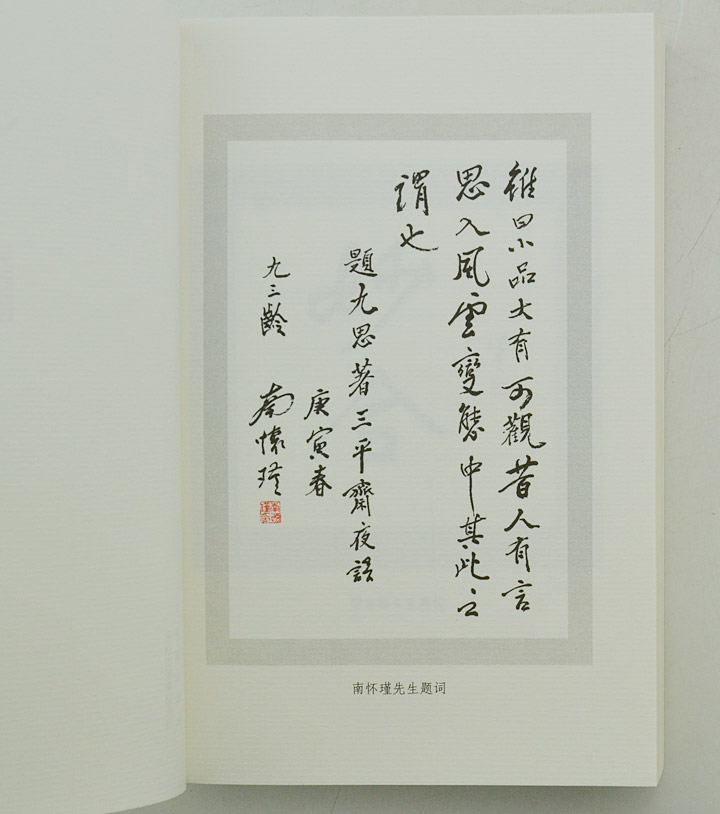 雖曰小品大有可觀昔人有言
思入風雲變態中其此之
謂也
題九思著三平齋夜談
庚寅春
九三齡 南懷瑾
南怀瑾先生题词